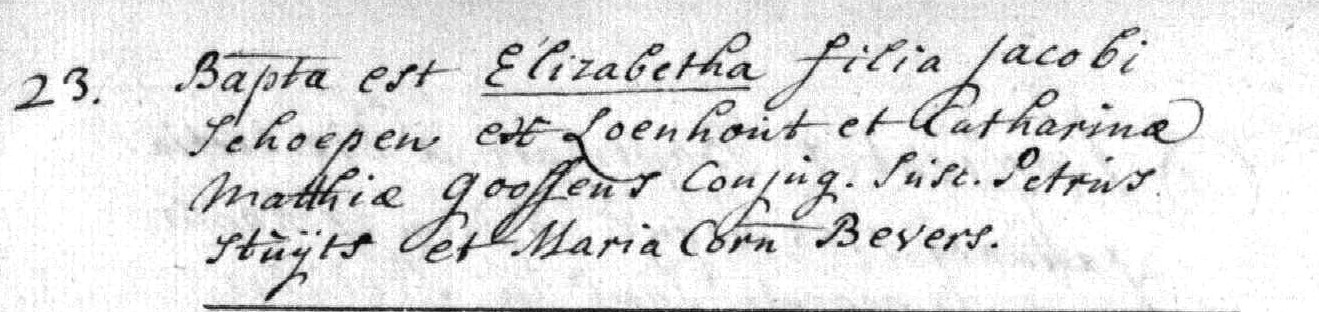 23. Bapta est Elizabetha filia Jacobi
Schoepen ex Loenhout et Catharinæ
Matthiæ Goossens Conjug. Susc. Petrus
Stuÿts et Maria Corn Bevers.